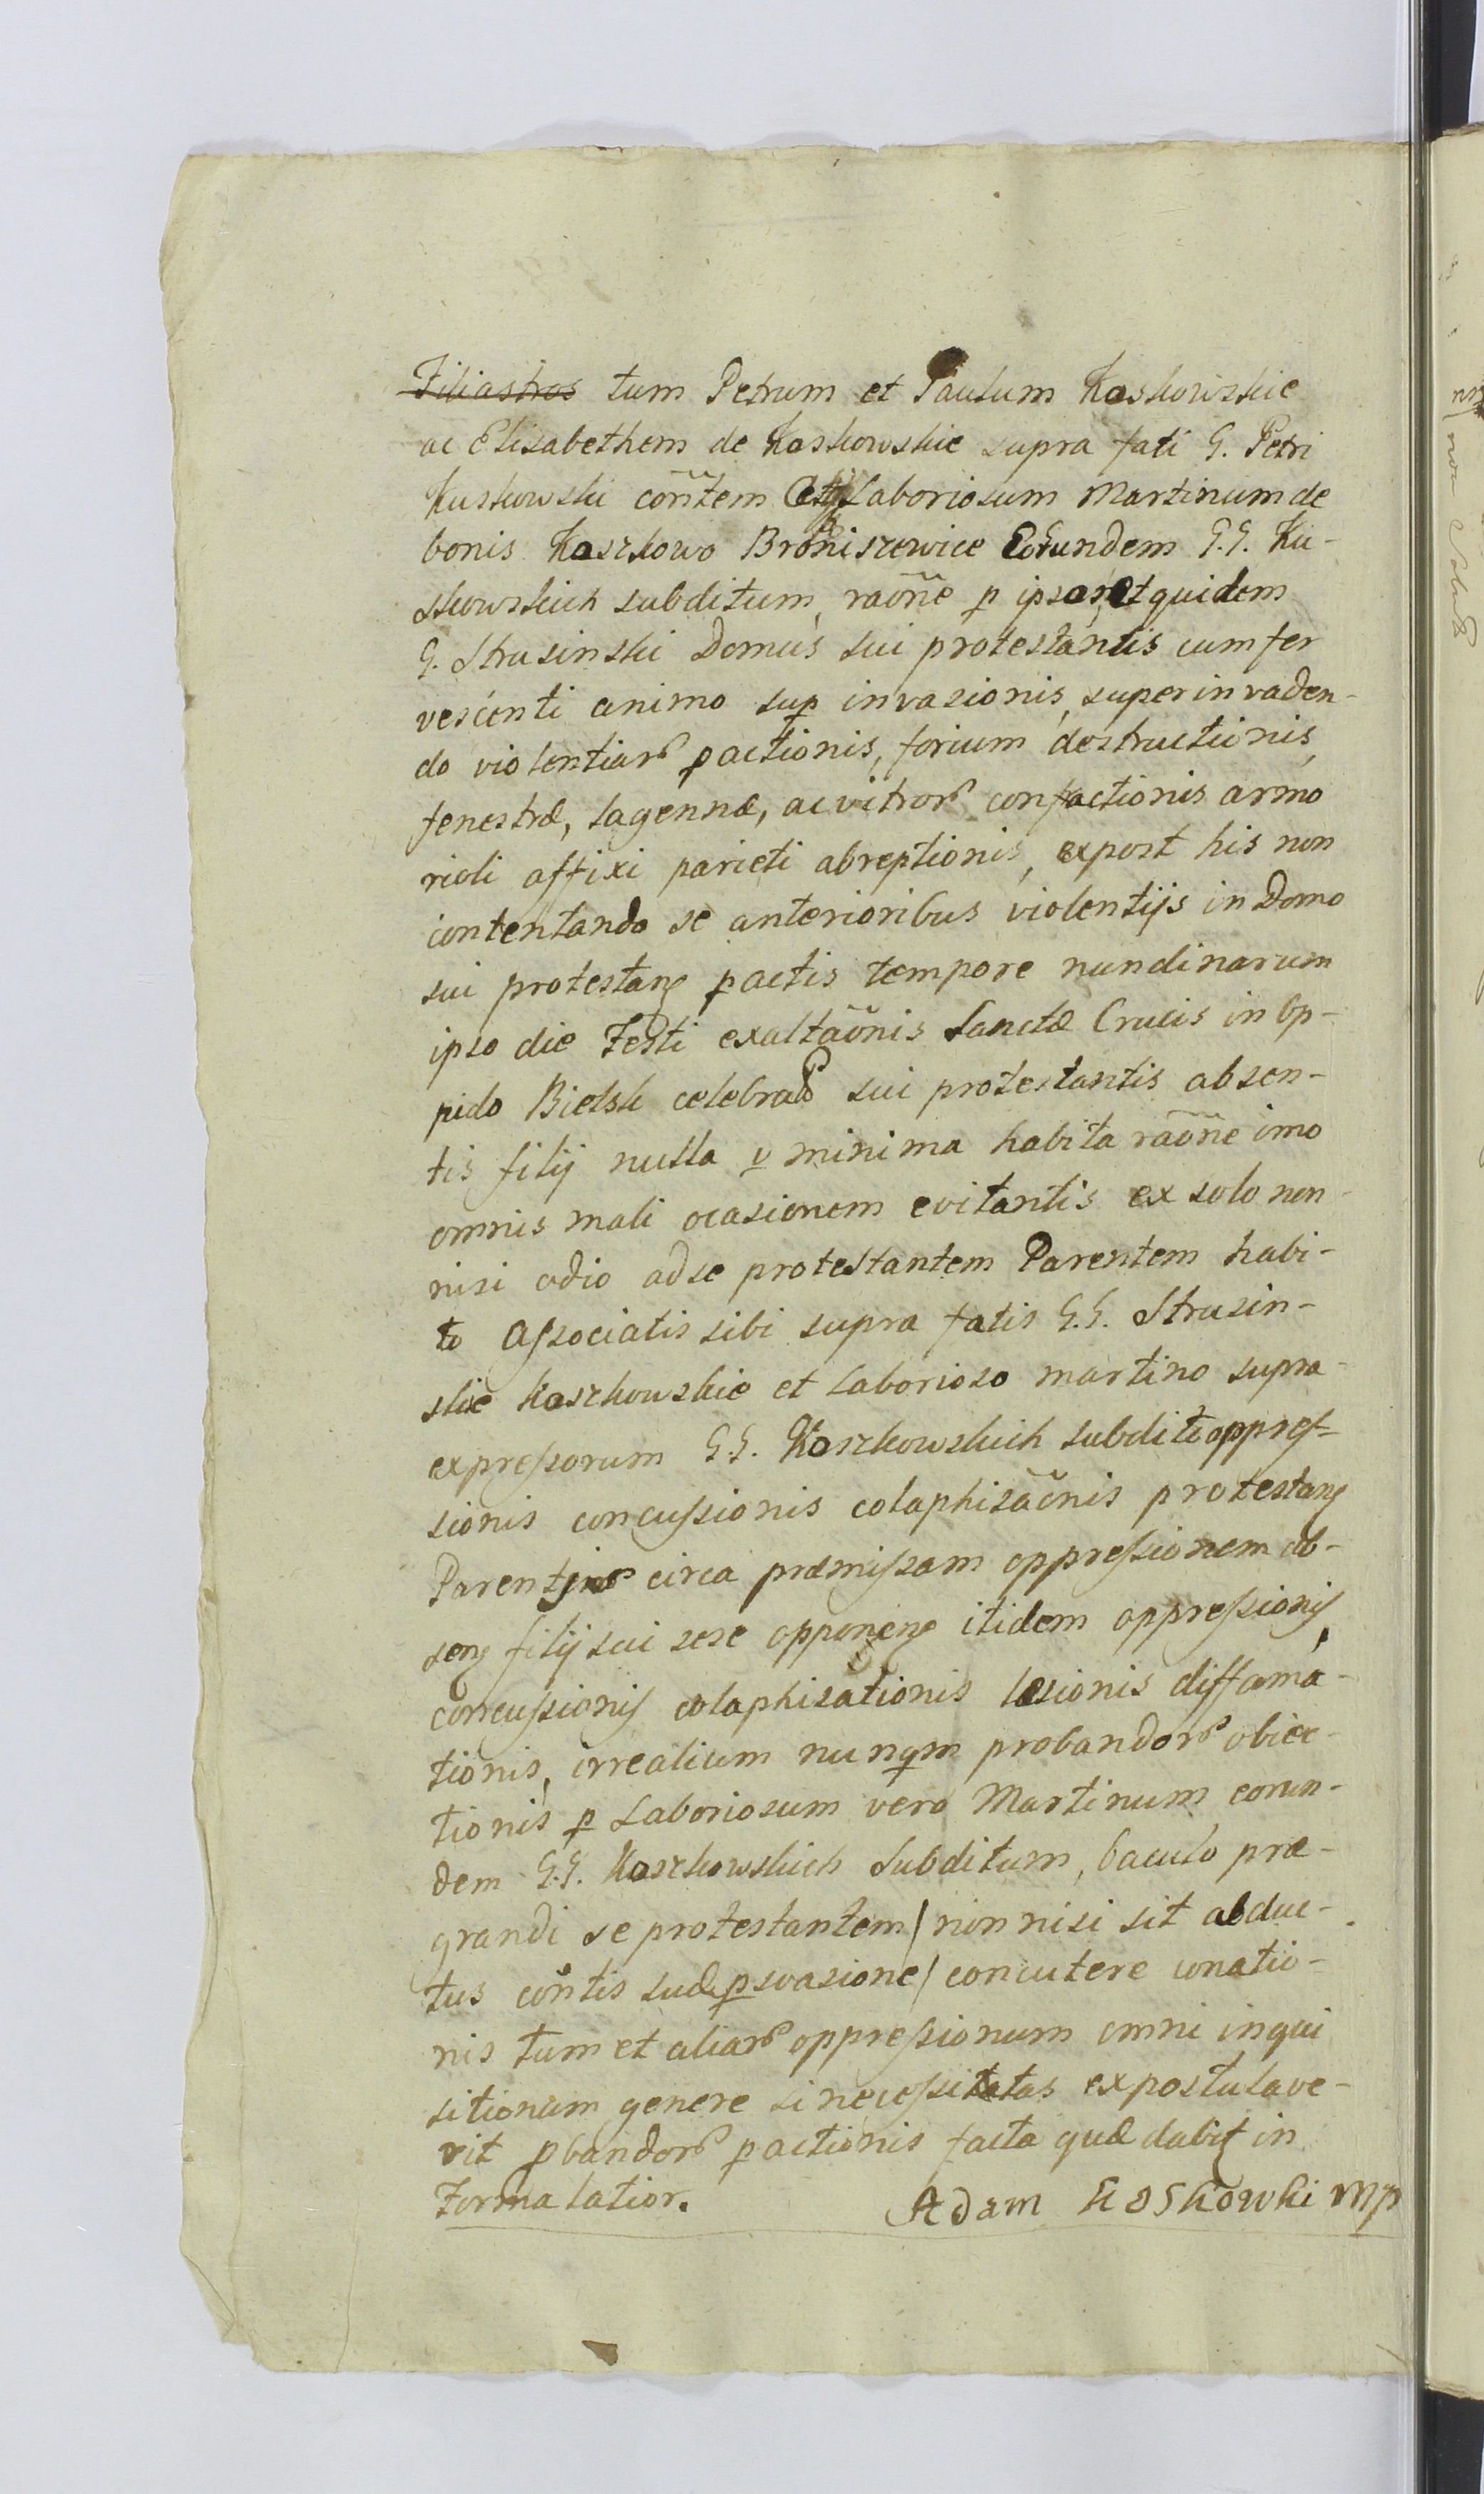 Filiastros tum Petrum et Paulum Koskowskie
ac Elisabethem de Koskowskie supra fati G. Petri
Kuskowski cõntem Laboriosum Martinum de
bonis Koszkowo Broniszewice Eorundem G.G. Ku-
skowskich subditum, raõne p ipsos, et quidem
G. Strusinski Domus sui protestantis cum fer
vescenti animo sup invasionis, superinvaden-
do violentiar pactionis, forium destructionis,
fenestræ, lagennæ, ac vitror confactionis armo
rioli affixi parieti abreptionis, expost his non
contentando se anterioribus violentijs in Domo
sui protestan pactis tempore nundinarum
ipso die Festi exaltaõnis Sanctæ Crucis in Op-
pido Bielsk celebrad sui protestantis absen-
tis filij nulla v minima habita raõne imo
omnis mali ocasionem evitantis ex solo non-
nisi odio ad se protestantem Parentem habi-
to Associatis sibi supra fatis G.G. Strusin-
skie Koszkowskie et Laborioso martino supra-
expressorum G.G. Koszkowskich subdito oppres-
sionis concussionis colaphisaõnis protestan
circa præmissam oppressionem ab-
sen filij sui sese opponen itidem oppressionis,
concussionis colaphisationis læsionis diffama-
tionis, irrealium nunqm probandor obiec-
tionis p Laboriosum vero Martinum eorun-
dem G.G. Koszkowskich Subditum, baculo præ-
grandi se protestantem / non nisi sit abduc-
tus cõntis suæ psvasione / concutere conatio-
nis tum et aliar oppressionum omni inqui
sitionum genere si necessitatas expostulave-
rit pbandor pactionis facta quæ dabit in
Forma latior. Adam Koskowki mp